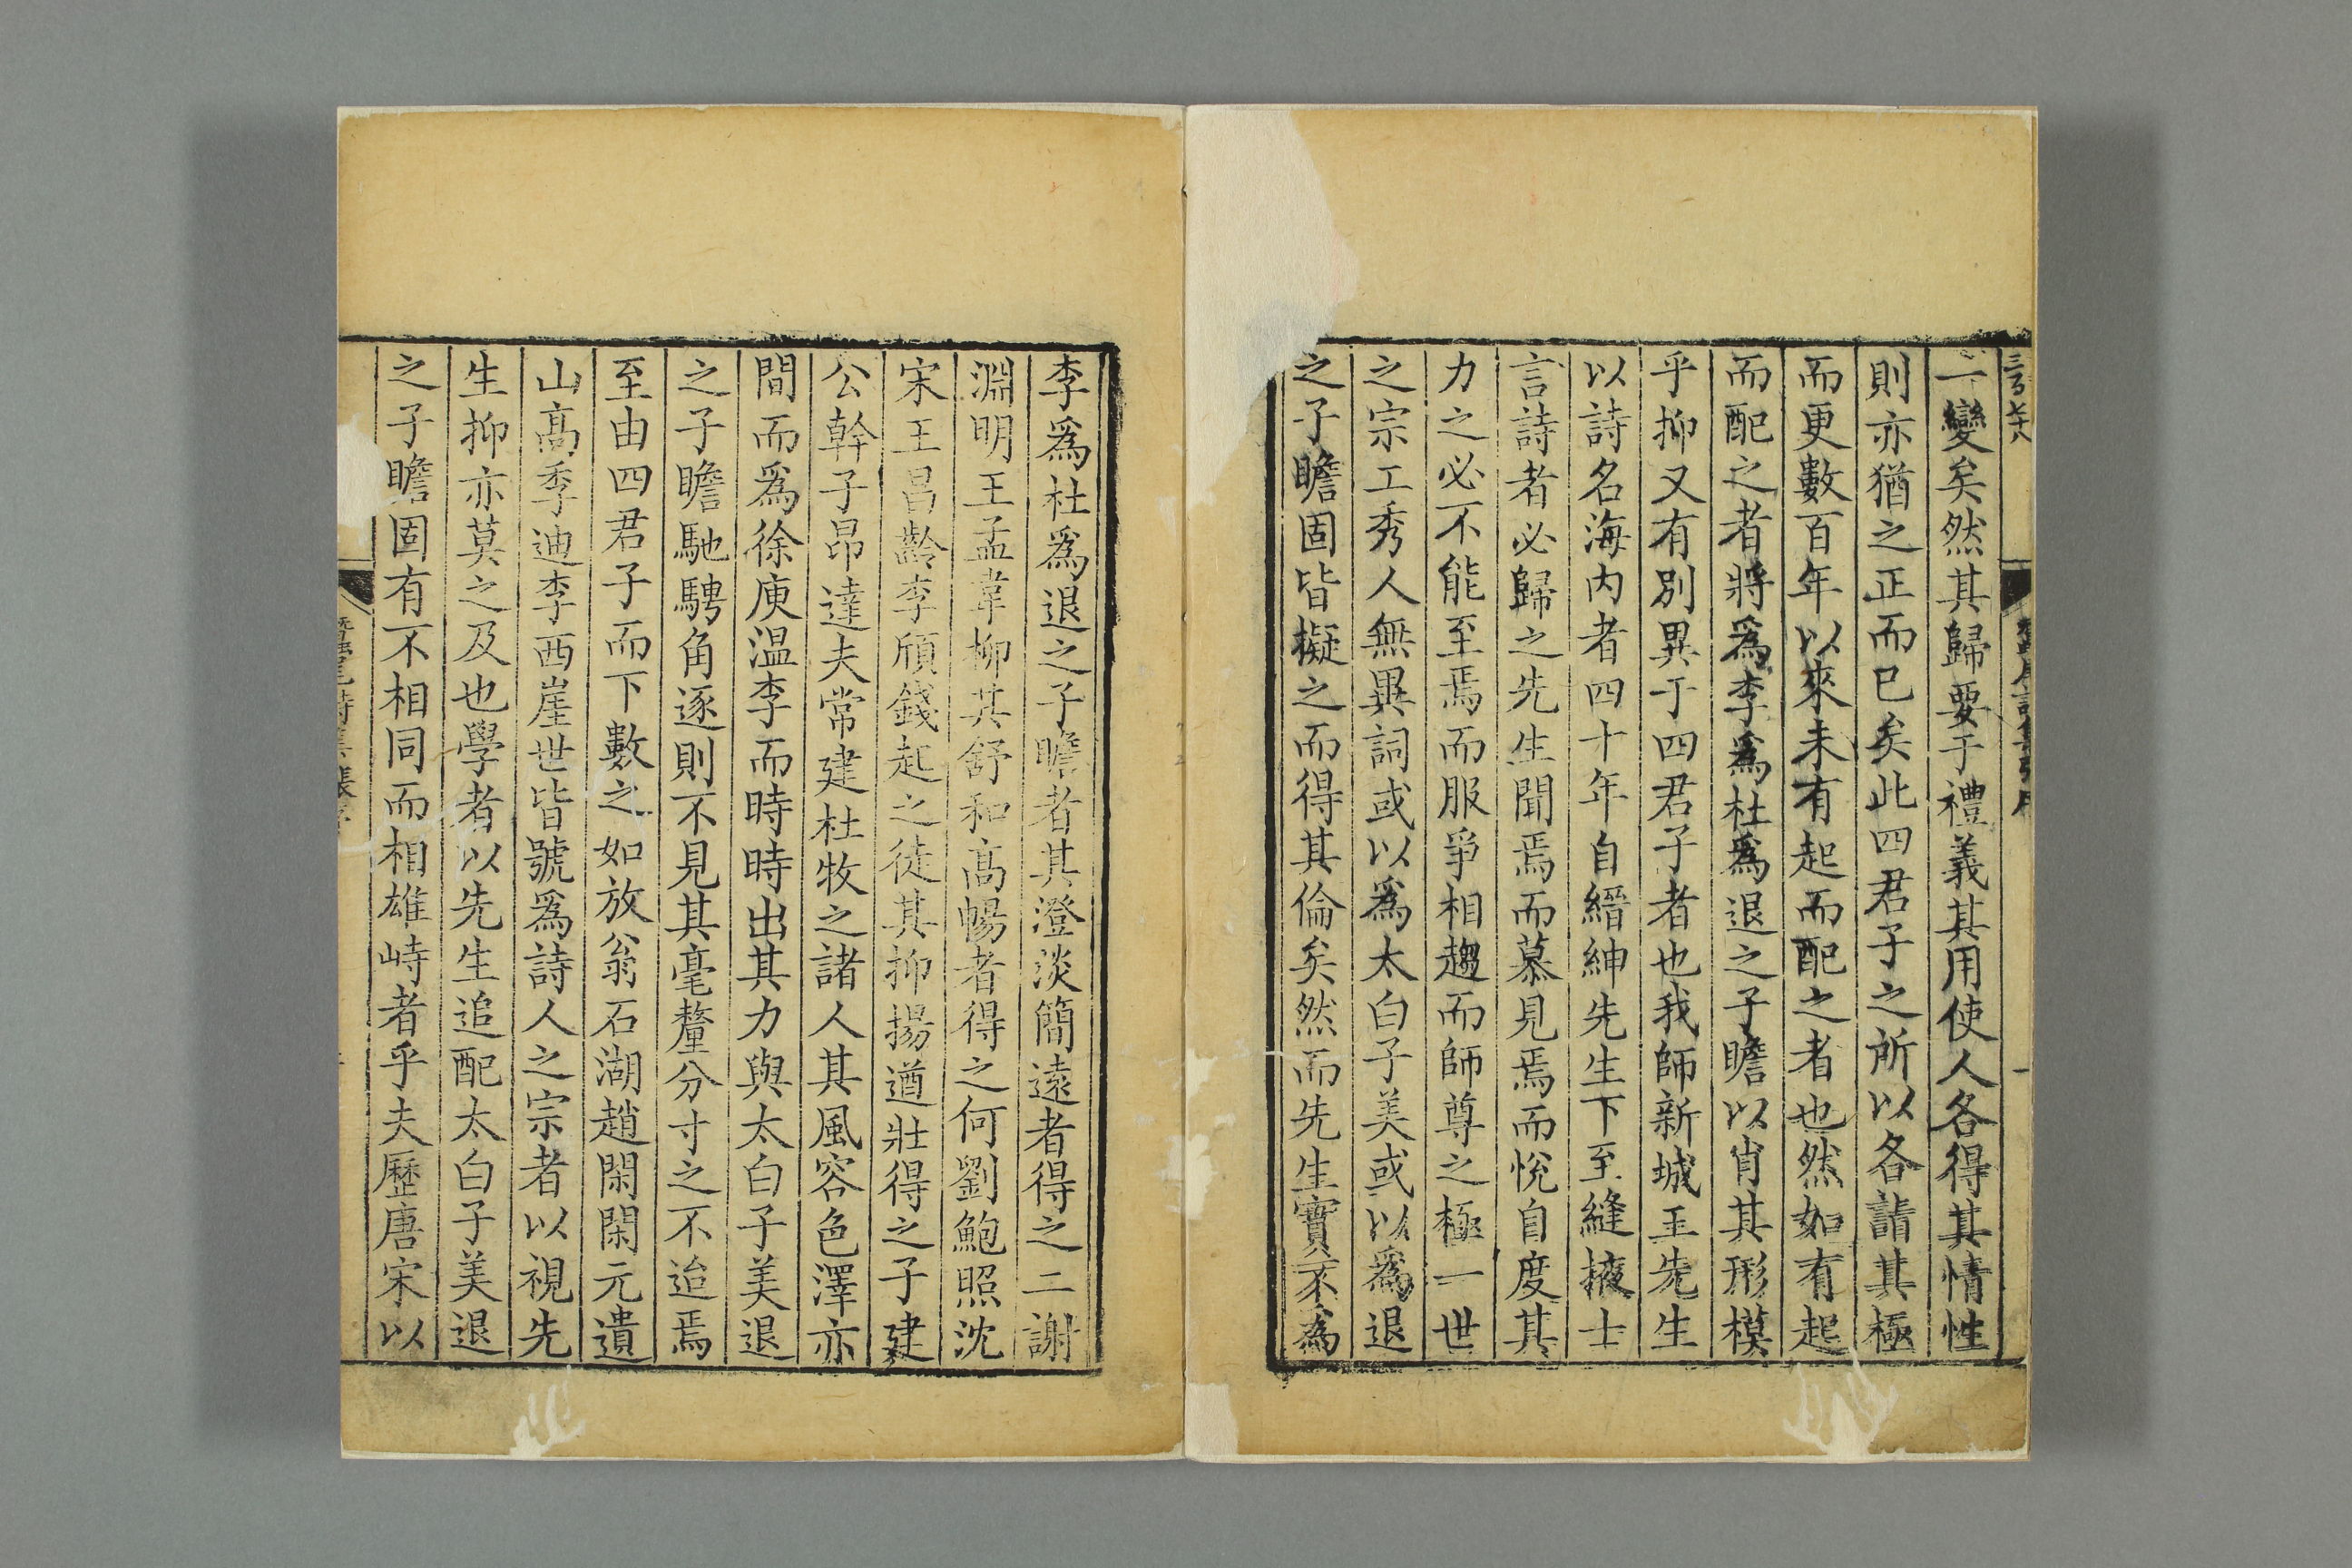 一變矣然其歸要于禮義其用使人各得其情性
則亦猶之正而已矣此四君子之所以各詣其極
而更數百年以來未有起而配之者也然如有起
而配之者將爲李爲杜爲退之子瞻以肖其形模
乎抑又有別異于四君子者也我師新城王先生
以詩名海内者四十年自縉紳先生下至縫掖士
言詩者必歸之先生聞焉而慕見焉而悅自度其
力之必不能至焉而服爭相趨而師尊之極一世
之宗工秀人無異詞或以爲太白子美或以爲退
之子瞻固皆擬之而得其倫矣然而先生實不爲
李爲杜爲退之子瞻者其澄淡簡遠者得之二謝
淵明王孟韋柳其舒和高暢者得之何劉鮑照沈
宋王昌齡李頎錢起之徒其抑揚遒壯得之子建
公幹子昂達夫常建杜牧之諸人其風容色澤亦
間而爲徐庾溫李而時時出其力與太白子美退
之子瞻馳騁角逐則不見其毫釐分寸之不迨焉
至由四君子而下數之如放翁石湖趙閑閑元遺
山高季迪李西崖世皆號爲詩人之宗者以視先
生抑亦莫之及也學者以先生追配太白子美退
之子瞻固有不相同而相雄峙者乎夫歷唐宋以